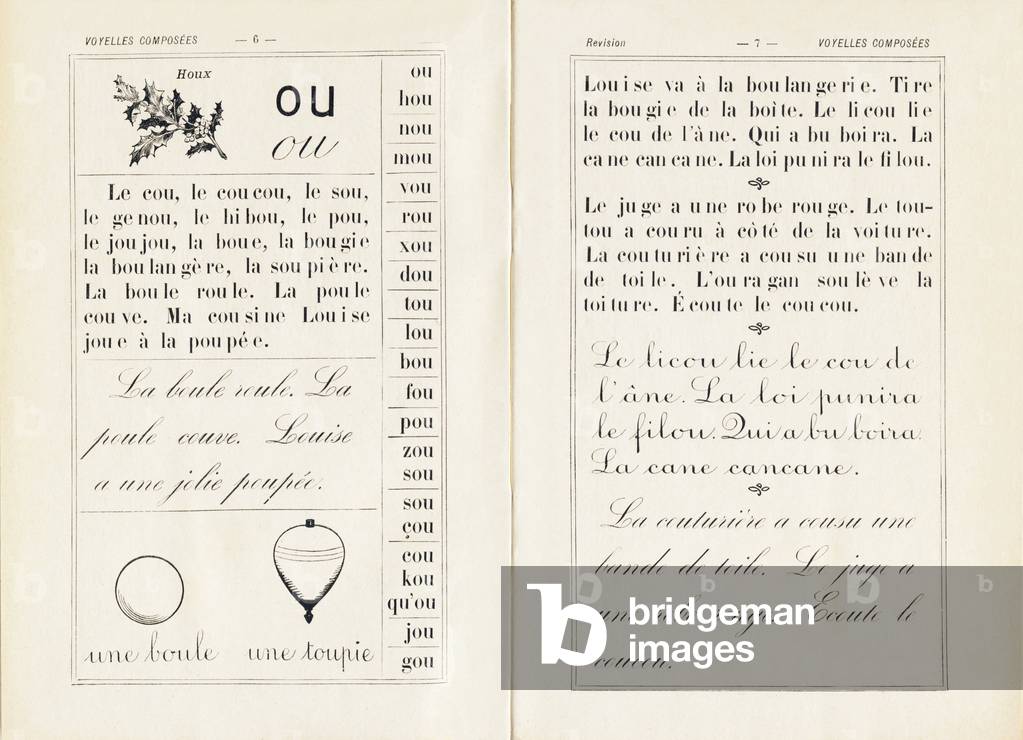 VOYELLES COMPOSÉES — 6 —
Houx
ou
ou
Le cou, le cou cou, le sou,
le ge nou, le hi bou, le pou,
le jou jou, la boue, la bou gie
la bou lan gère, la sou piè re.
La bou le rou le. La pou le
cou ve. Ma cou si ne Lou i se
jou e à la pou pé e.
La boule roule. La
poule couve. Louise
a une jolie poupée.
une boule une toupie
ou
hou
nou
mou
vou
rou
xou
dou
tou
lou
bou
fou
pou
zou
sou
sou
çou
cou
kou
qu'ou
jou
gou
Revision — 7 — VOYELLES COMPOSÉES
Lou i se va à la bou lan ge ri e. Ti re
la bou gi e de la boîte. Le li cou li e
le cou de l'â ne. Qui a bu boi ra. La
ca ne can ca ne. La loi pu ni ra le fi lou.
Le ju ge a u ne ro be rou ge. Le tou-
tou a cou ru à cô té de la voi tu re.
La cou tu ri è re a cou su u ne ban de
de toi le. L'ou ra gan sou lè ve la
toi tu re. É cou te le cou cou.
Le licou lie le cou de
l'âne. La loi punira
le filou. Qui a bu boira.
La cane cancane.
La couturière a cousu une
bande de toile. Le juge a
une Ecoute le
coucou.
bridgeman
images